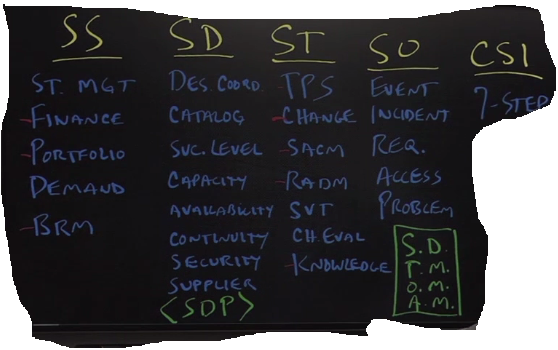 SS
ST. MGT
FINANCE
PORTFOLIO
DEMAND
BRM
SD
DES. COORD.
CATALOG
SVC. LEVEL
CAPACITY
AVAILABILITY
CONTINUITY
SECURITY
SUPPLIER
<SDP>
ST
TPS
CHANGE
SACM
RADM
SVT
CH. EVAL
KNOWLEDGE
SO
EVENT
INCIDENT
REQ.
ACCESS
PROBLEM
S.D.
T.M.
O.M.
A.M.
CSI
7-STEP